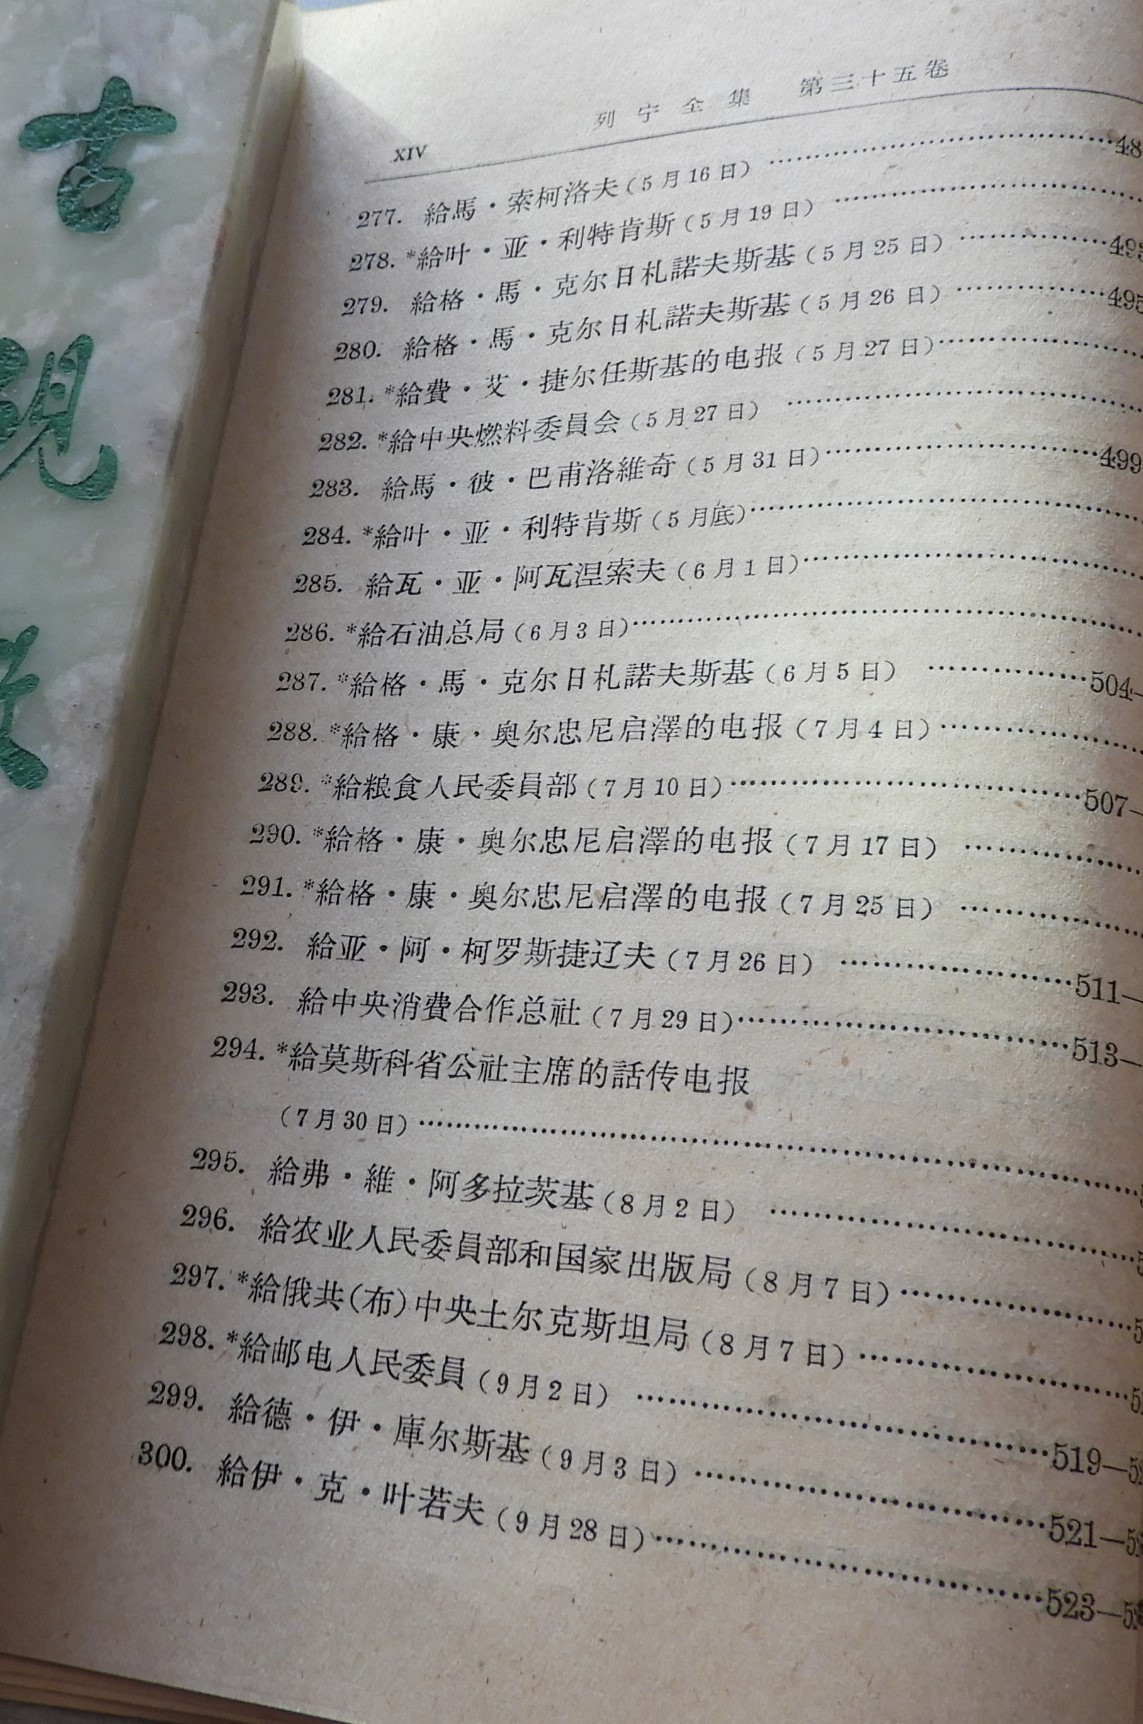 吉
祝
列宁全集 第三十五卷
XIV
277. 給馬·索柯洛夫(5月16日)……48
278. *給叶·亚·利特肯斯(5月19日)……
279. 給格·馬·克尔日札諾夫斯基(5月25日)……493
280. 給格·馬·克尔日札諾夫斯基(5月26日)……495
281. *給費·艾·捷尔任斯基的电报(5月27日)……
282. *給中央燃料委員会(5月27日)……
283. 給馬·彼·巴甫洛維奇(5月31日)……499
284. *給叶·亚·利特肯斯(5月底)……
285. 給瓦·亚·阿瓦涅索夫(6月1日)……
286. *給石油总局(6月3日)……
287. *給格·馬·克尔日札諾夫斯基(6月5日)……504—
288. *給格·康·奥尔忠尼启澤的电报(7月4日)……
289. *給粮食人民委員部(7月10日)……507—
290. *給格·康·奥尔忠尼启澤的电报(7月17日)……
291. *給格·康·奥尔忠尼启澤的电报(7月25日)……
292. 給亚·阿·柯罗斯捷辽夫(7月26日)……511—
293. 給中央消費合作总社(7月29日)……513—
294. *給莫斯科省公社主席的話传电报
(7月30日)……
295. 給弗·維·阿多拉茨基(8月2日)……5
296. 給农业人民委員部和国家出版局(8月7日)……5
297. *給俄共(布)中央土尔克斯坦局(8月7日)……5
298. *給邮电人民委員(9月2日)……519—5
299. 給德·伊·庫尔斯基(9月3日)……521—5
300. 給伊·克·叶若夫(9月28日)……523—5